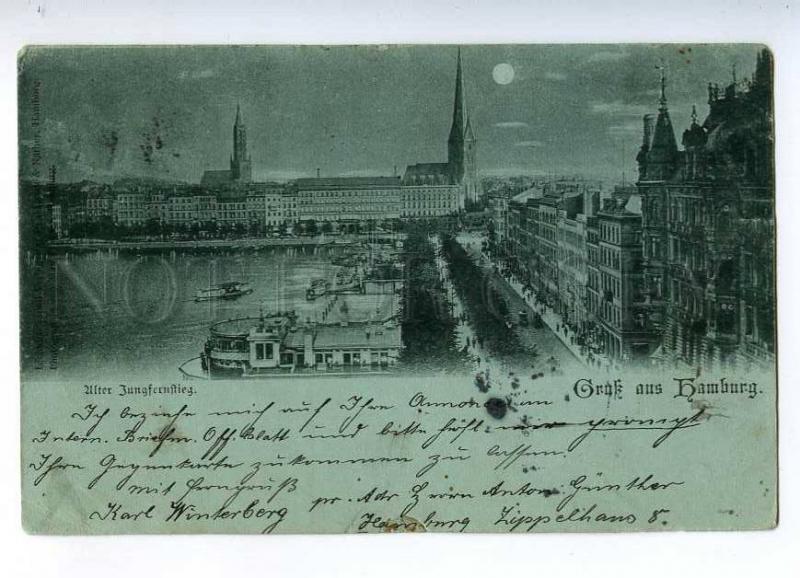 Alter Jungfernstieg.
Gruß aus Hamburg.
Ich beziehe mich auf Ihre Annonce im
Intern. Briefm. Off. Blatt und bitte höfl. mir prompt
Ihre Gegenkarte zukommen zu lassen.
mit Ferngruß
pr. Adr. Herrn Anton Günther
Karl Winterberg
Hamburg Zippelhaus 8.